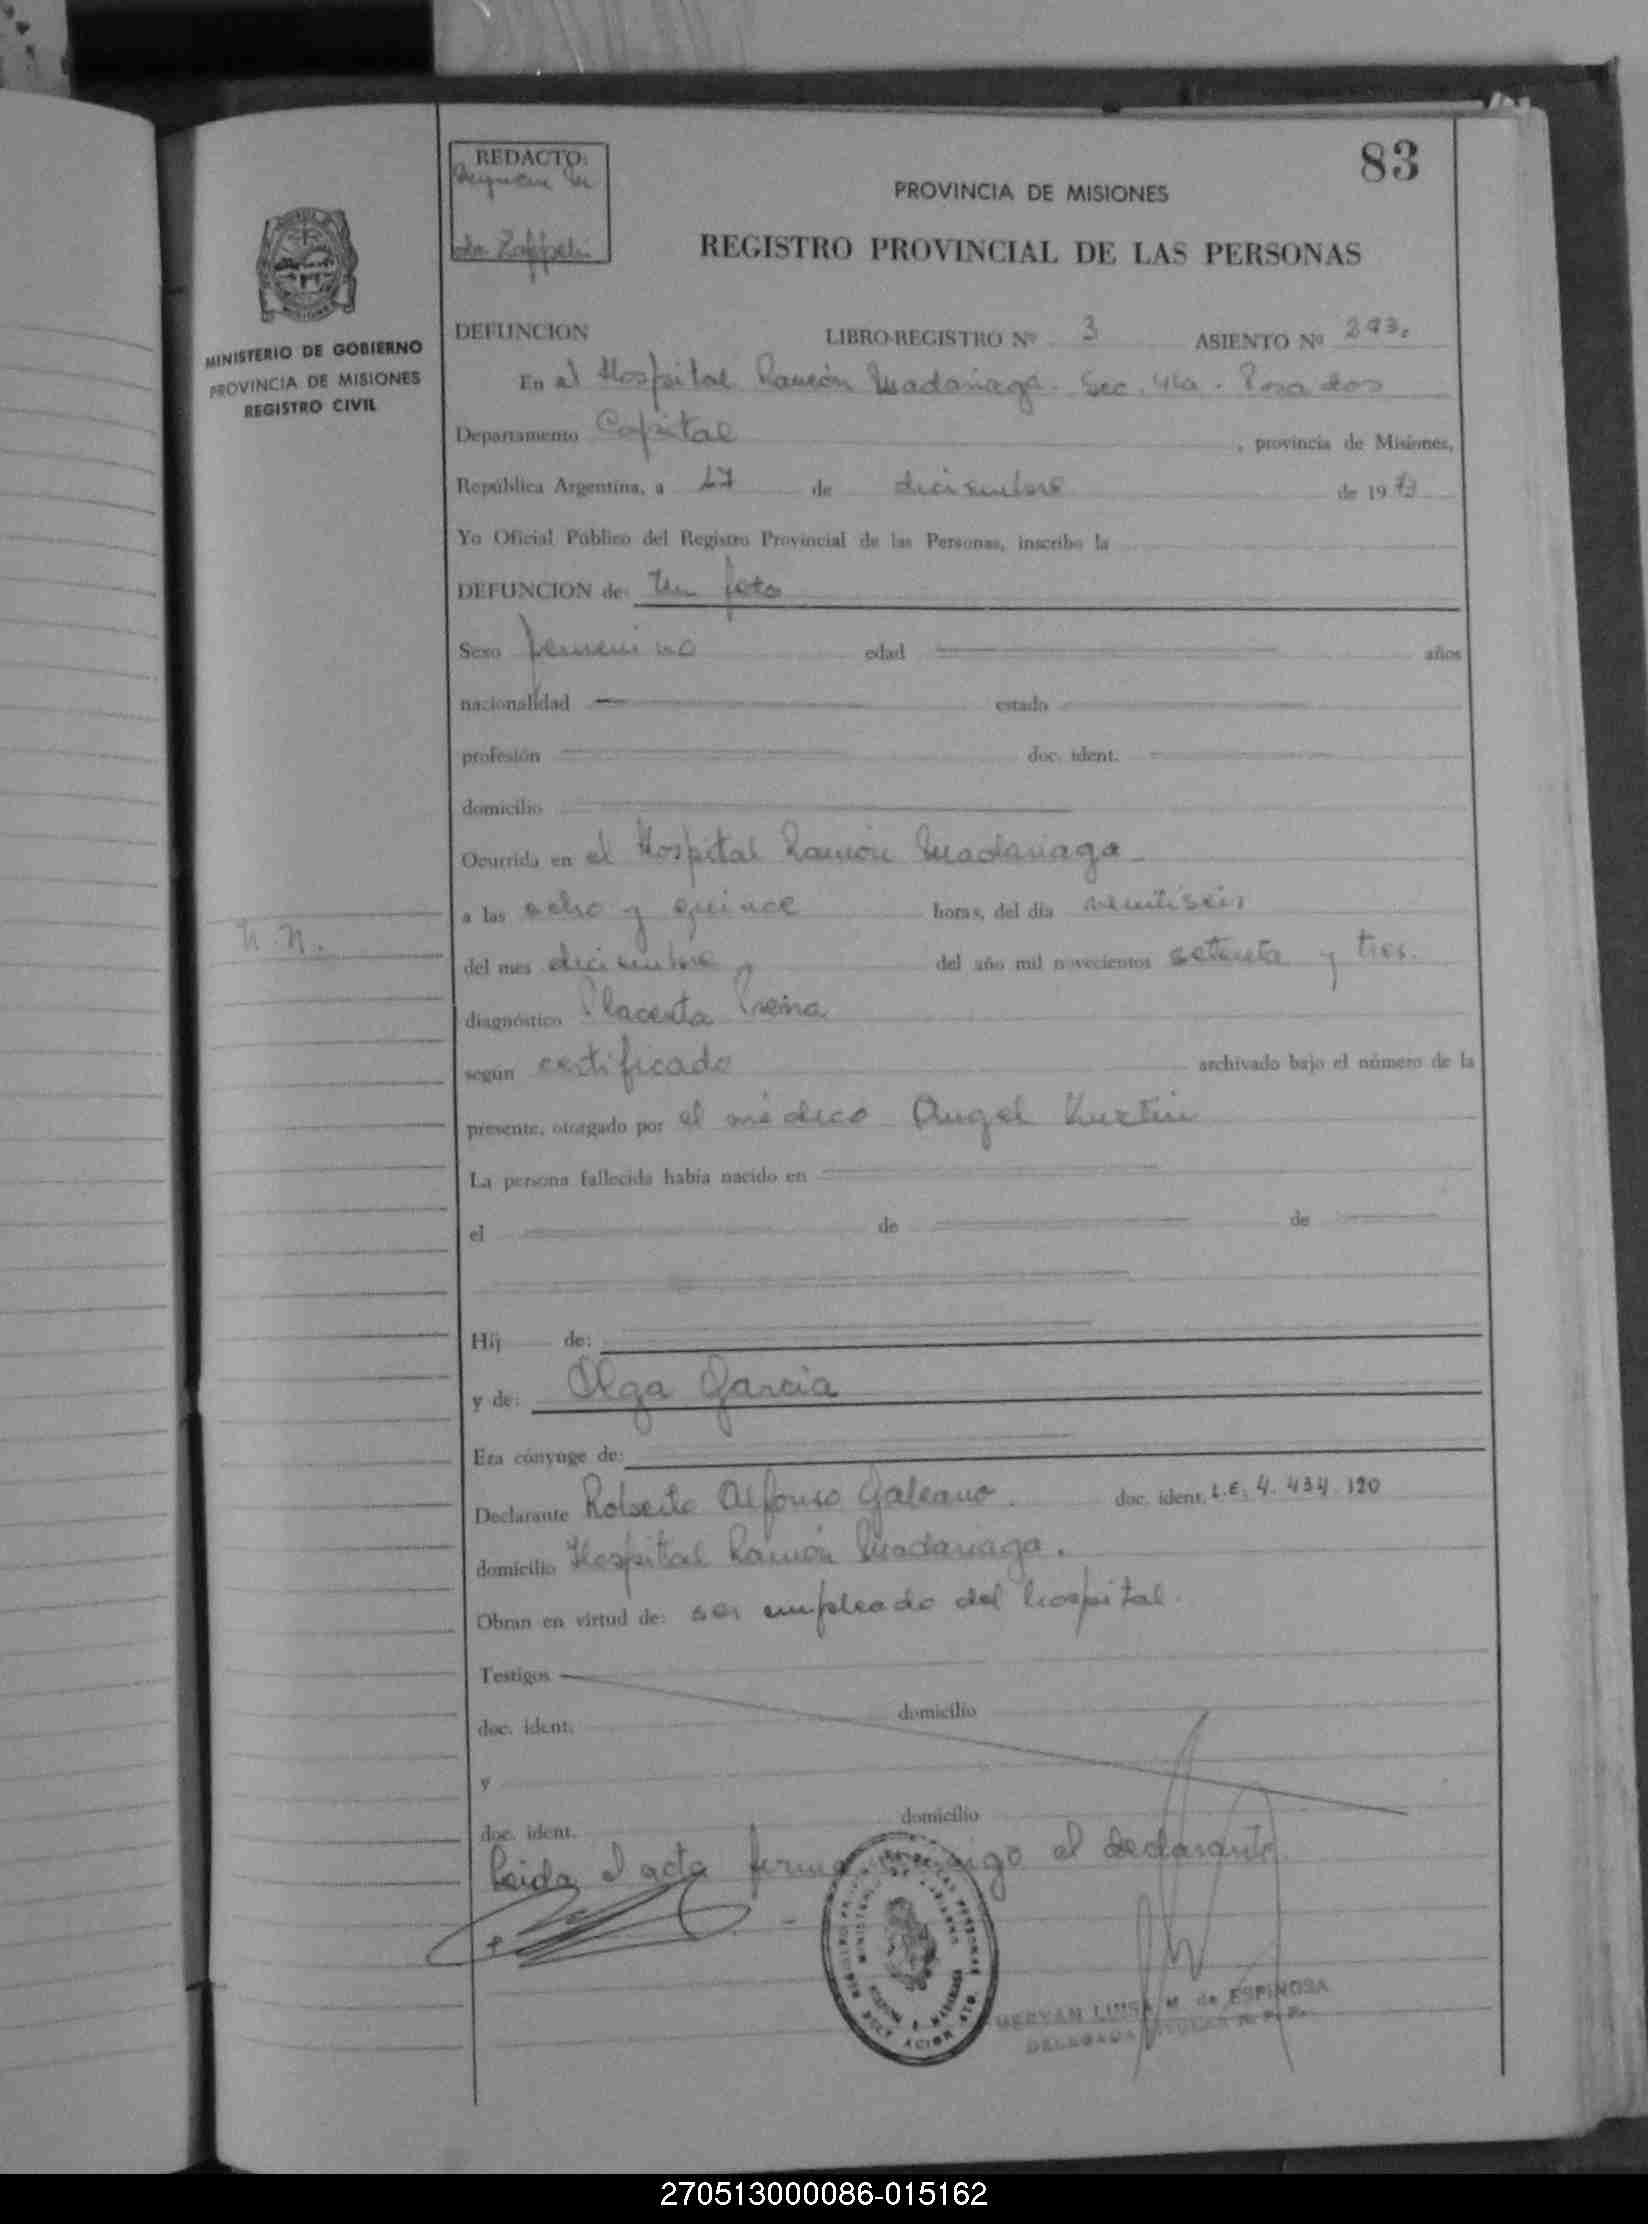 83
REDACTO:
PROVINCIA DE MISIONES
REGISTRO PROVINCIAL DE LAS PERSONAS
MINISTERIO DE GOBIERNO
PROVINCIA DE MISIONES
REGISTRO CIVIL
DEFUNCION LIBRO-REGISTRO Nº 3 ASIENTO Nº
En el Hospital Ramón Madariaga. Sec. 4ta. Posadas
Departamento Capital, provincia de Misiones,
República Argentina, a 27 de diciembre de 1973
Yo Oficial Público del Registro Provincial de las Personas, inscribo la
DEFUNCION de: Un feto
Sexo femenino edad años
nacionalidad estado
profesión doc. ident.
domicilio
Ocurrida en el Hospital Ramón Madariaga
a las ocho y quince horas, del día veintiseis
N.N.
del mes diciembre del año mil novecientos setenta y tres.
diagnóstico Placenta Previa
según certificado archivado bajo el número de la
presente, otorgado por el médico Angel
La persona fallecida había nacido en
el de de
Hij de:
y de: Olga Garcia
Era cónyuge de:
Declarante Roberto Alfonso Galeano. doc. ident. L.E. 4.434.120
domicilio Hospital Ramón Madariaga.
Obran en virtud de: ser empleado del hospital.
Testigos
doc. ident. domicilio
y
doc. ident. domicilio
Leida el acta firma conmigo el declarante.
LUISA M. de ESPINOSA
DELEGADA TITULAR R. P. P.
270513000086-015162